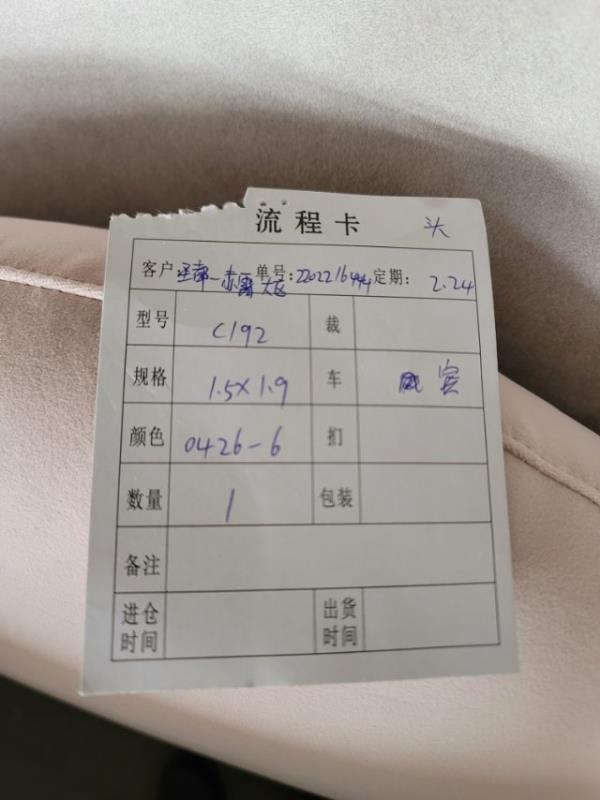 流程卡 头
客户 单号: 定期: 2.24
型号 C192 裁
规格 1.5×1.9 车 宾
颜色 0426-6 扪
数量 1 包装
备注
进仓时间 出货时间